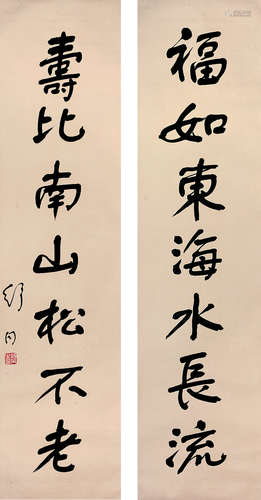 福如東海水長流
壽比南山松不老
舒同